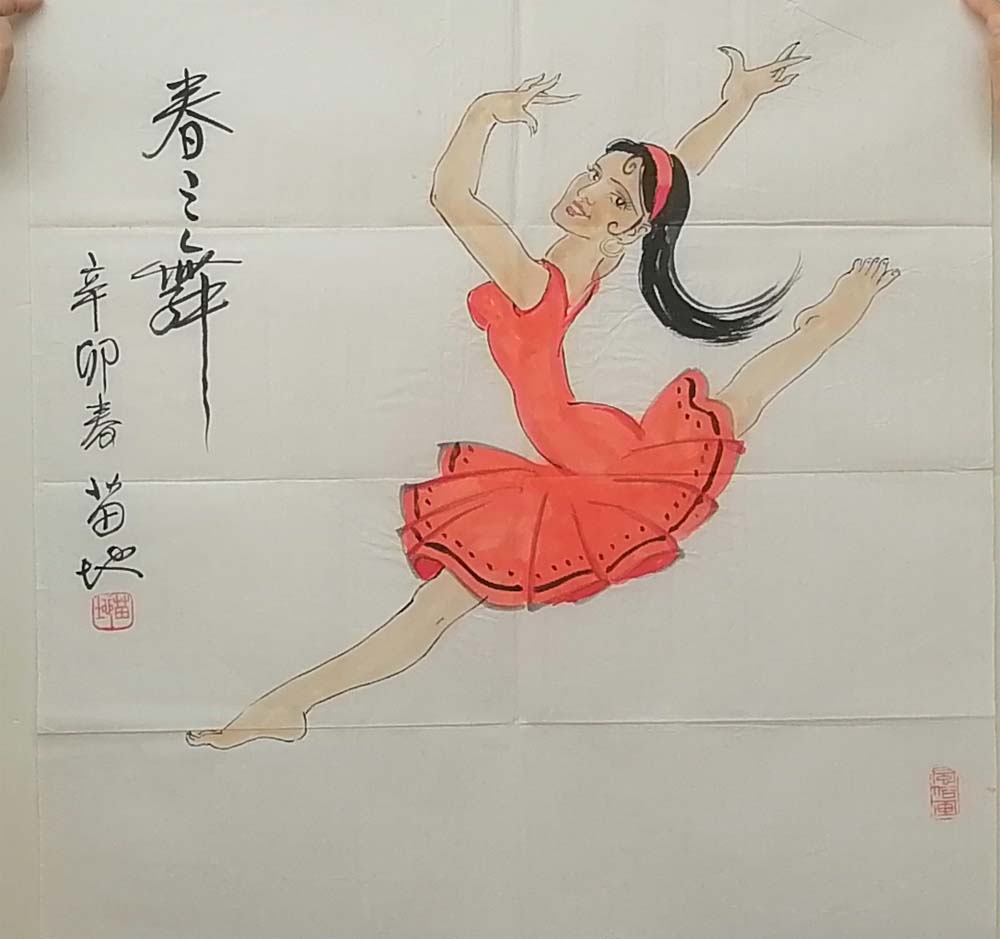 春之舞
辛卯春
苗地
苗地